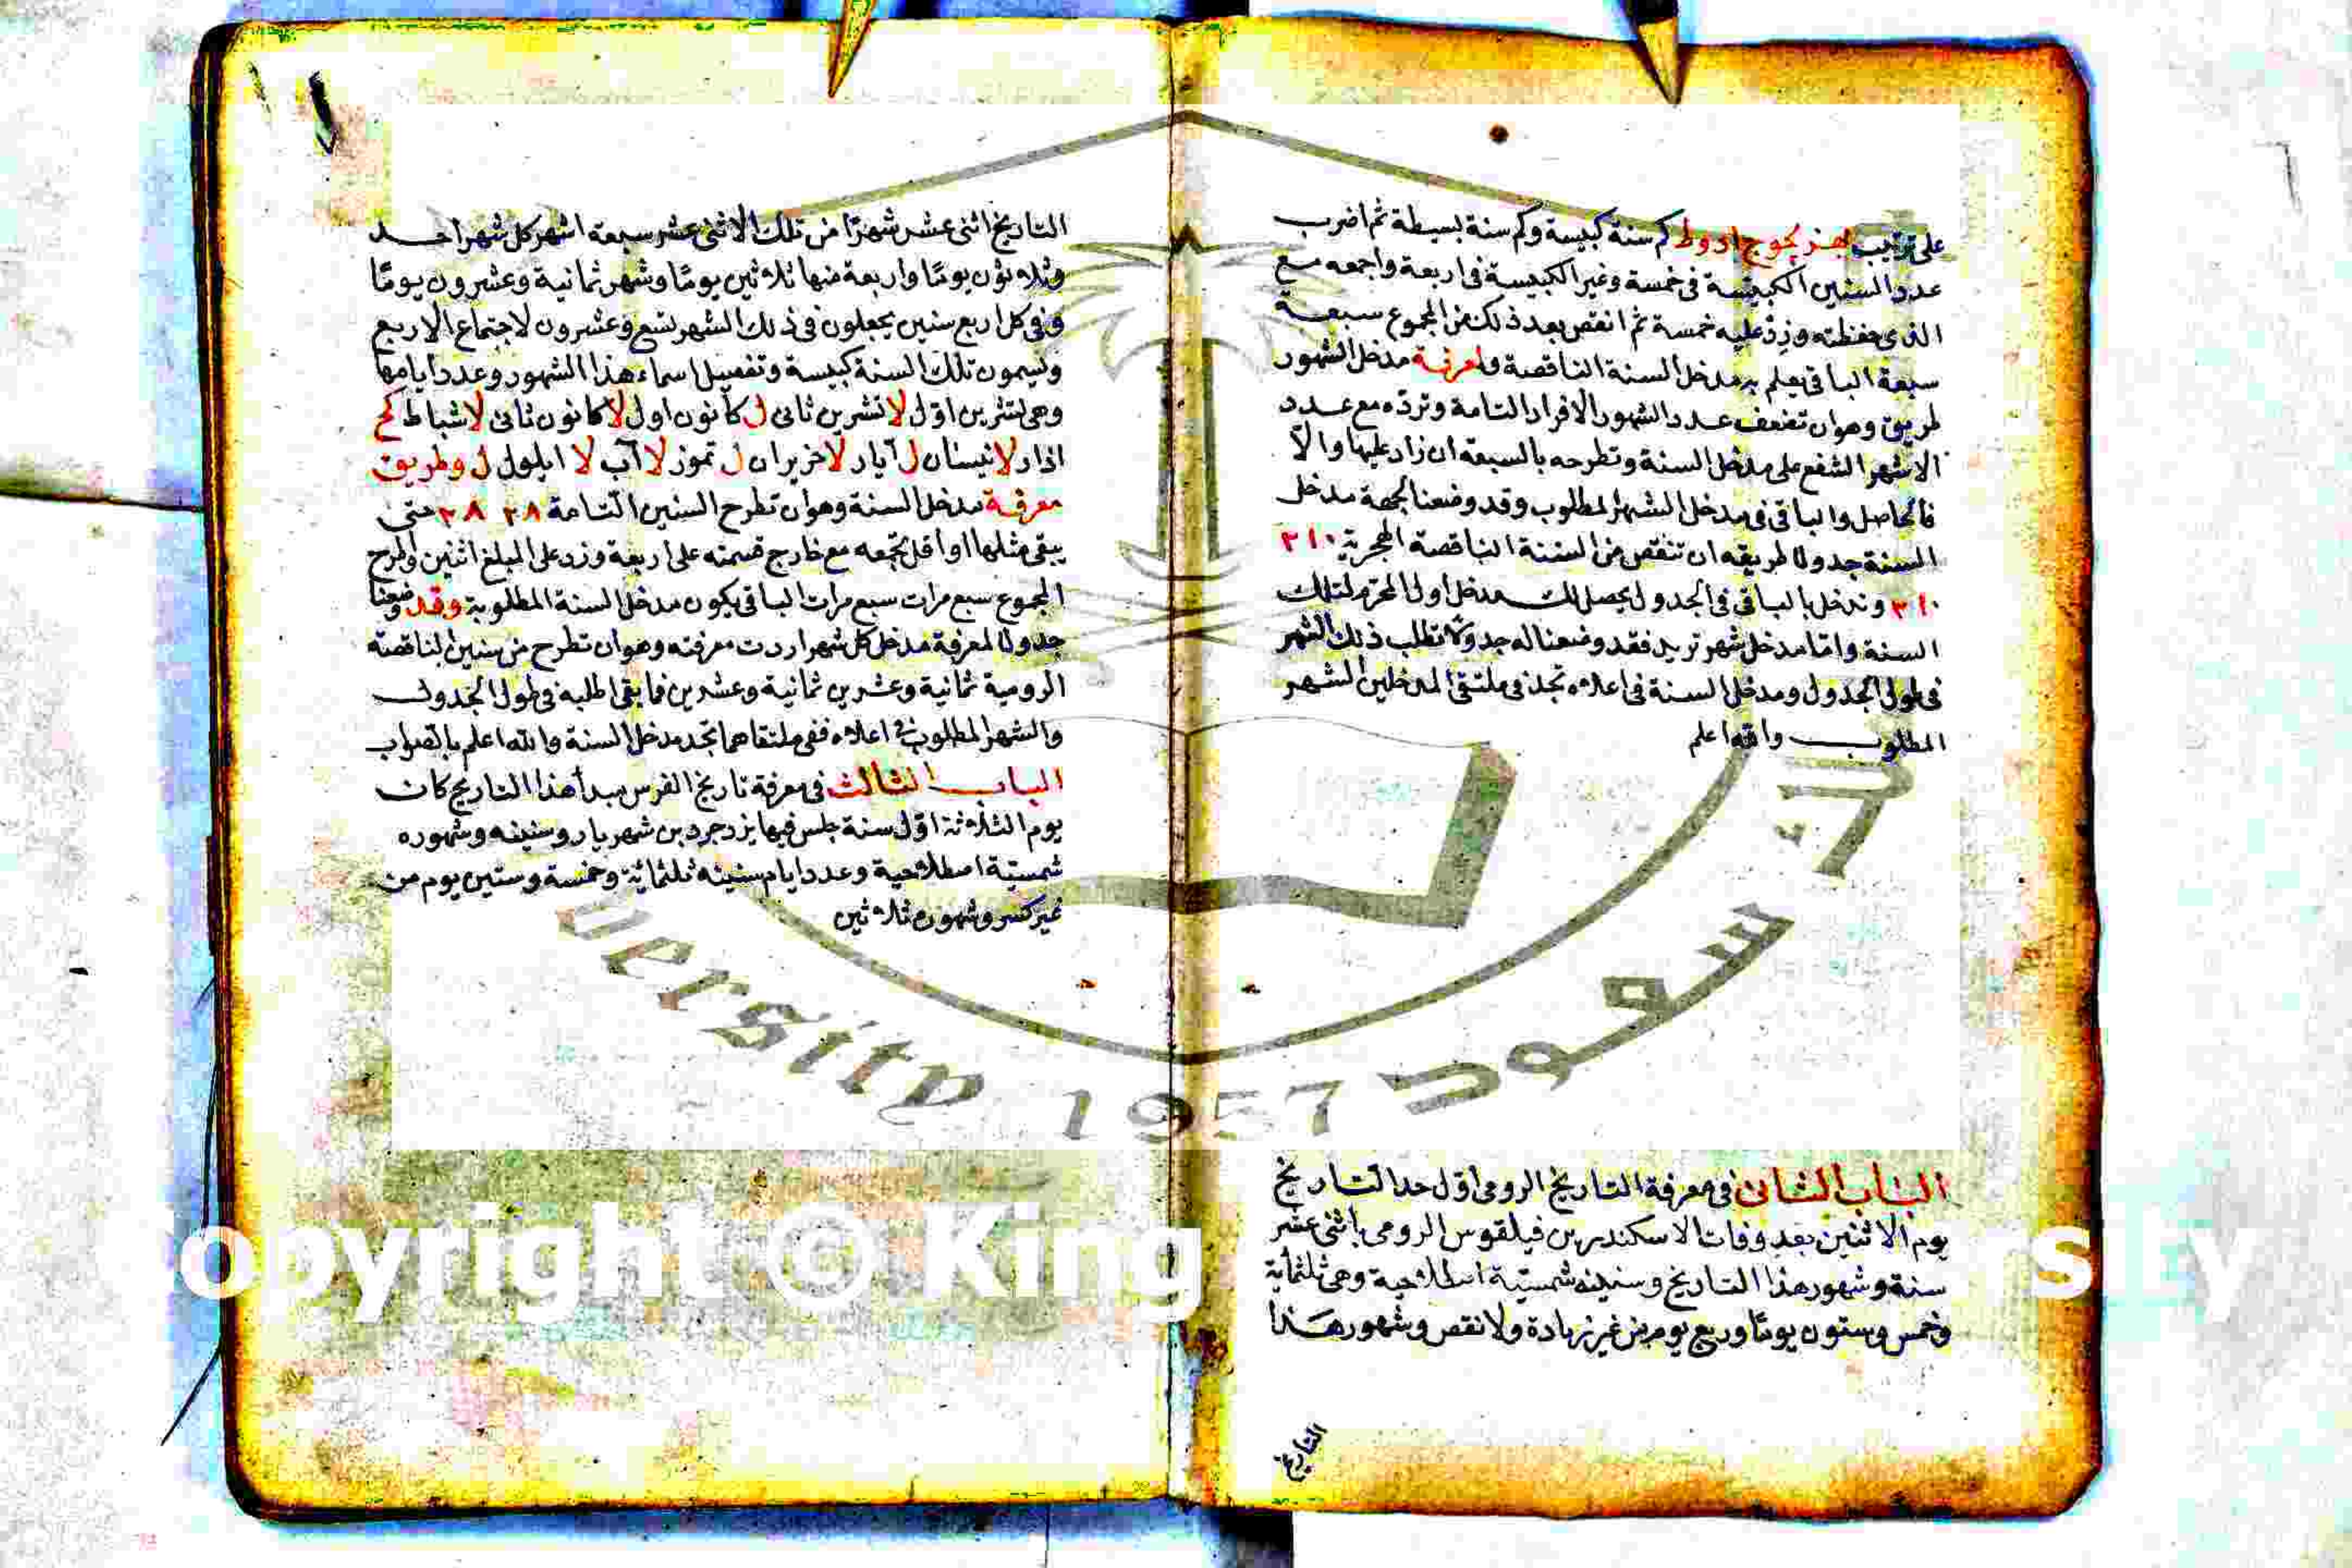 على ترتيب بهزيجوج ادوط كم سنة كبيسة وكم سنة بسيطة ثم اضرب
عدد السنين الكبيسة فى خمسة وغير الكبيسة فى اربعة واجمعه مع
الذى حفظته وزد عليه خمسة ثم انقص بعد ذلك من المجموع سبعة
سبعة الباقى يعلم به مدخل السنة الناقصة ولمعرفة مدخل الشهور
طريق وهو ان تضعف عدد الشهور الافراد التامة وتردّه مع عدد
الاشهر الشفع على مدخل السنة وتطرحه بالسبعة ان زاد عليها والاّ
فالحاصل والباقى فى مدخل الشهر المطلوب وقد وضعنا لجهة مدخل
السنة جدولا طريقه ان تنقص من السنة الناقصة الهجرية ٢١٠
٢١٠ وتدخل بالباقى فى الجدول يحصل لك مدخل اول المحرم لتلك
السنة واما مدخل شهر تريد فقد وضعنا له جدولا تطلب ذلك الشهر
فى طول الجدول ومدخل السنة فى اعلاه تجد فى ملتقى المدخلين الشهر
المطلوب والله اعلم
الباب الثانى فى معرفة التاريخ الرومى اول حد التاريخ
يوم الاثنين بعد وفات الاسكندر بن فيلقوس الرومى باثنى عشر
سنة وشهور هذا التاريخ وسنينه شمسيّة اصطلاحية وهى ثلثماية
وخمس وستون يومًا وربع يوم من غير زيادة ولا نقص وشهور هذا
التاريخ
التاريخ اثنى عشر شهرًا من تلك الاثنى عشر سبعة اشهر كل شهر احد
وثلاثون يومًا واربعة منها ثلاثين يومًا وشهر ثمانية وعشرون يومًا
وفى كل اربع سنين يجعلون فى ذلك الشهر تسع وعشرون لاجتماع الاربع
وليسمون تلك السنة كبيسة وتفصيل اسماء هذا الشهور وعدد ايامها
وهى تشرين اوّل لا تشرين ثانى ل كانون اول لا كانون ثانى لا شباط كح
اذار لا نيسان ل آيار لا حزيران ل تموز لا آب لا ايلول ل وطريق
معرفة مدخل السنة وهو ان تطرح السنين التامة ٢٨ ٢٨ حتى
يبقى مثلها او اقل تجمعه مع خارج قسمته على اربعة وزد على المبلغ اثنين واطرح
المجموع سبع مرات سبع مرات الباقى يكون مدخل السنة المطلوبة وقد وضعنا
جدولا لمعرفة مدخل كل شهر اردت معرفته وهو ان تطرح من سنين الناقصة
الرومية ثمانية وعشرين ثمانية وعشرين فما بقى اطلبه فى طول الجدول
والشهر المطلوب فى اعلاه ففى ملتقاهما تجد مدخل السنة والله اعلم بالصواب
الباب الثالث فى معرفة تاريخ الفرس مبدأ هذا التاريخ كان
يوم الثلاثة اوّل سنة جلس فيها يزدجرد بن شهريار وسنينه وشهوره
شمسيّة اصطلاحية وعدد ايام سنينه ثلثماية وخمسة وستين يوم من
غير كسر وشهوره ثلاثين
سعود
versity 1957
opyright © King
sity